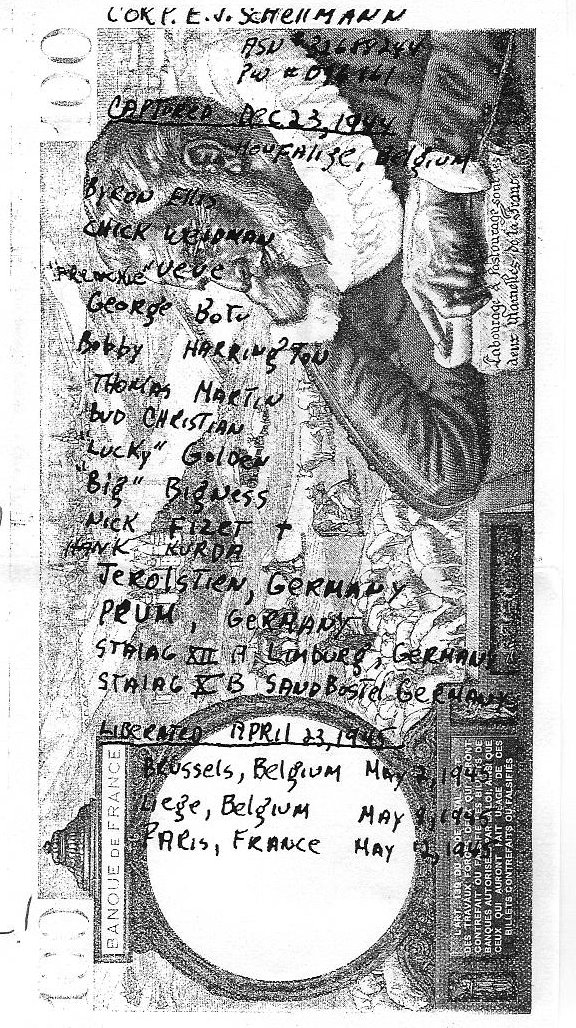 CORP. E. J. SCHELLMANN
ASN #
PW #
CAPTURED DEC 23, 1944
HOUFALIZE, BELGIUM
BYRON ELLIS
CHICK WEIDMAN
"FRENCHIE" VEVE
GEORGE BOTU
BOBBY HARRINGTON
THOMAS MARTIN
BUD CHRISTIAN
"LUCKY" GOLDEN
"BIG" BIGNESS
NICK FIZET †
HANK KURDA
JEROLSTIEN, GERMANY
PRUM, GERMANY
STALAG XII A LIMBURG, GERMANY
STALAG X B SANDBOSTEL GERMANY
LIBERATED APRIL 23, 1945
BRUSSELS, BELGIUM MAY 1945
LIEGE, BELGIUM MAY 1945
PARIS, FRANCE MAY 12, 1945
Labourage & Pastourage sont les
deux Mamelles de la France
BANQUE DE FRANCE
100
100
DES TRAVAUX FORCÉS CEUX QUI AURONT
CONTREFAIT OU FALSIFIÉ LES BILLETS DE
BANQUES AUTORISÉES PAR LA LOI, AINSI QUE
CEUX QUI AURONT FAIT USAGE DE CES
BILLETS CONTREFAITS OU FALSIFIÉS